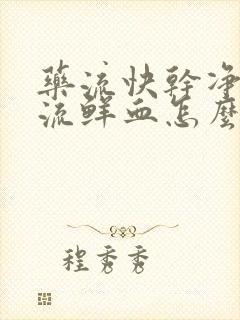 藥流快幹净
流鮮血怎麽
程秀秀